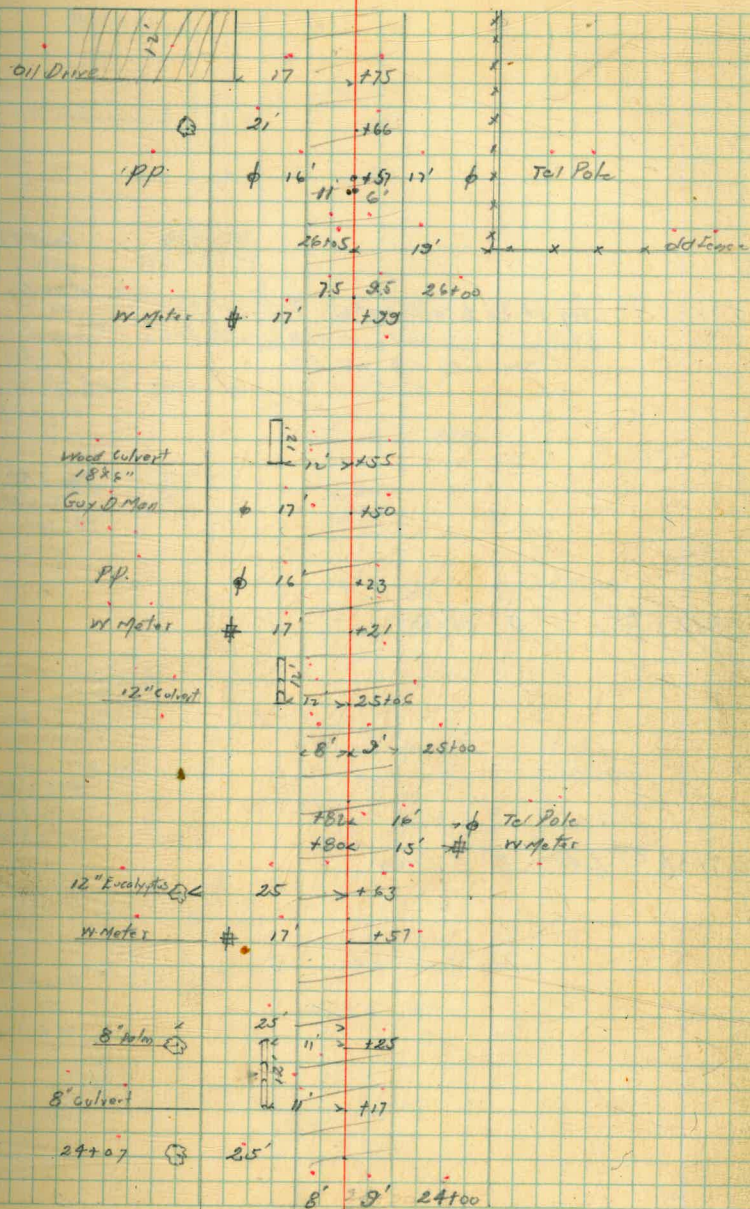 12'
Oil Drive 17 +75
21' +66
P.P. ϕ 16' +57 17' ϕ Tel Pole
11' 6'
26+05 19' old Fence
7.5 9.5 26+00
W Meter # 17' +99
12'
Wood Culvert 12' +55
18"x6"
Guy D Man ϕ 17' +50
P.P. ϕ 16' +23
W Meter # 17' +21
12'
12" Culvert 12' 25+06
8' 9' 25+00
+82 16' ϕ Tel Pole
+80 15' # W Meter
12" Eucalyptus 25 +63
W Meter # 17' +57
25'
8" Palm 11' +25
12'
8" Culvert 11' +17
24+07 25'
8' 9' 24+00